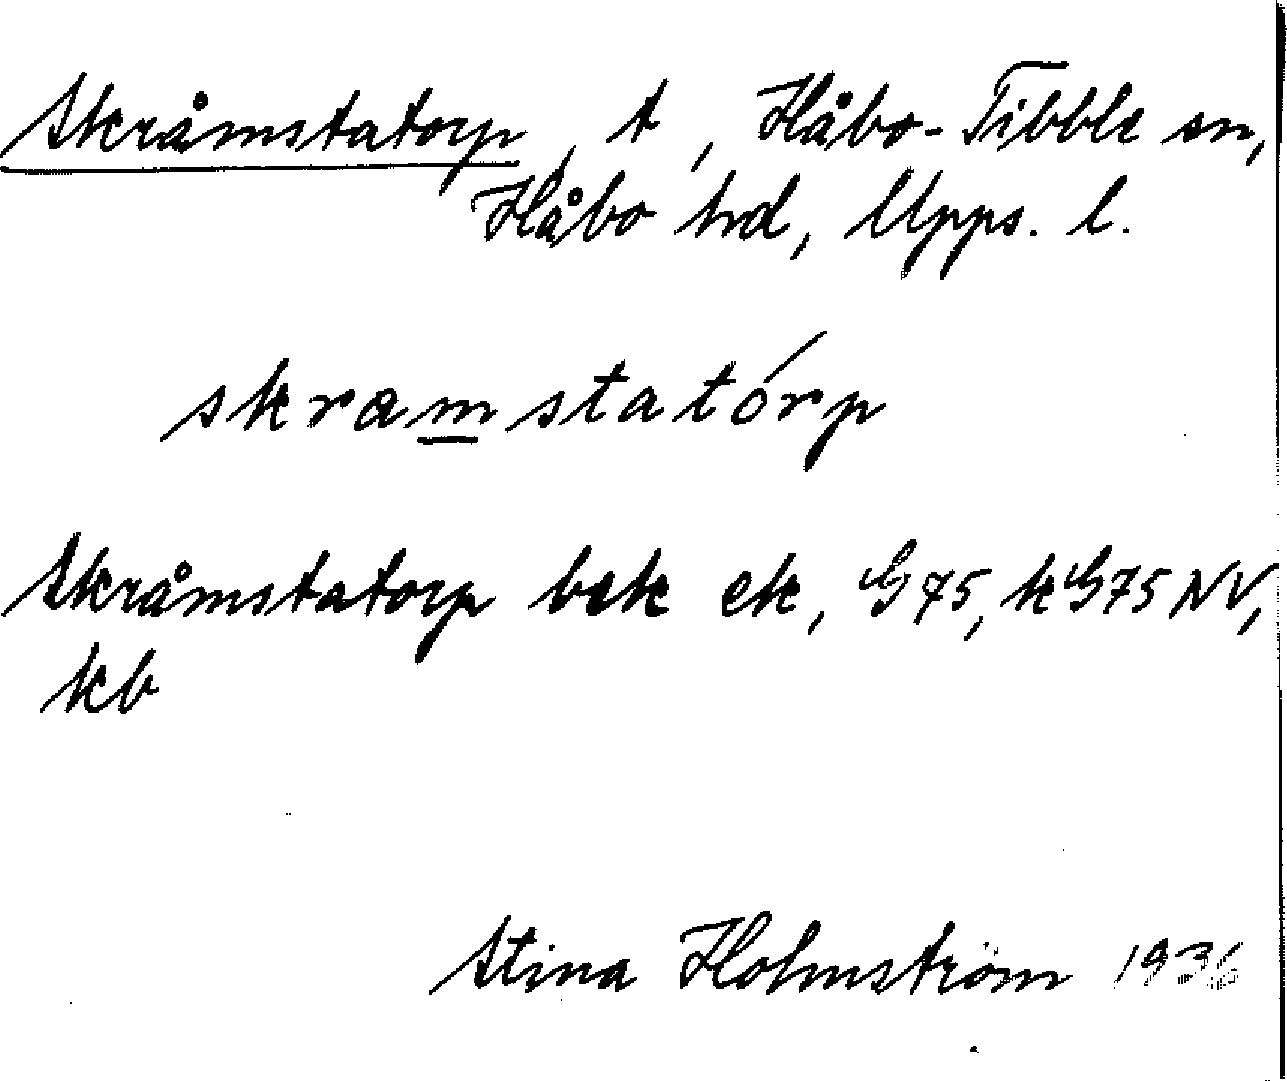 Skråmstatorp, t, Håbo-Tibble sn,
Håbo hd, Upps. l.
skramstatórp
Skråmstatorp bek ek, G75, kG75NV,
kb
Stina Holmström 1936